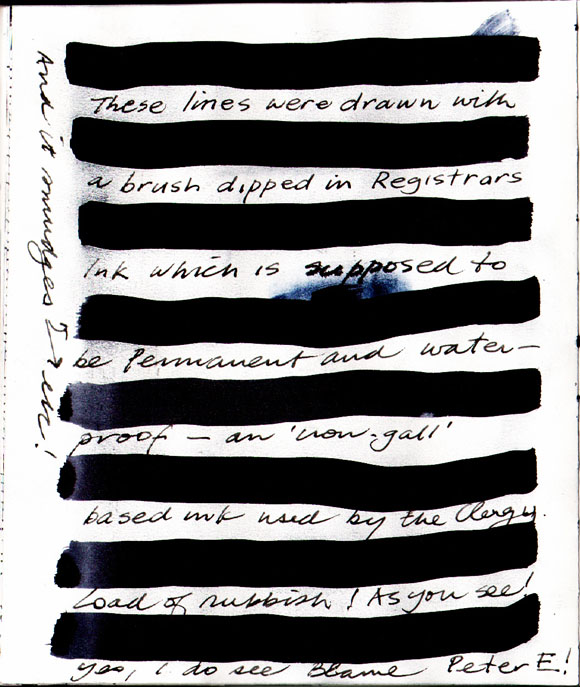 These lines were drawn with
a brush dipped in Registrars
Ink which is supposed to
be Permanent and water-
proof – an 'iron-gall'
based ink used by the Clergy.
Load of rubbish! As you see!
yes, I do see Blame Peter E!
And it smudges